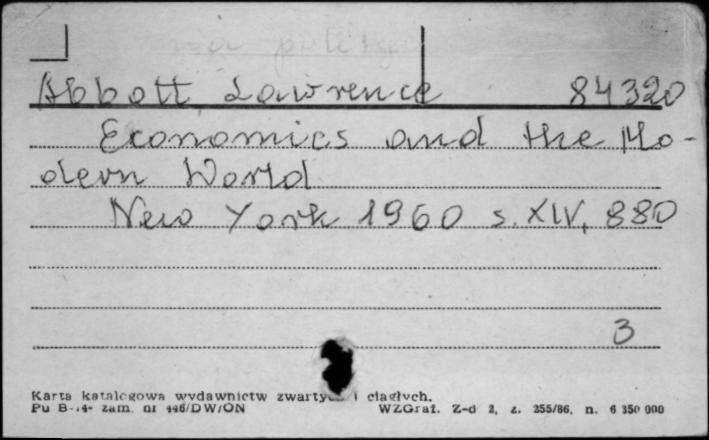 Abbott Lawrence 84320
Economics and the Mo-
dern World
New York 1960 s. XIV, 880
3
Karta katalogowa wydawnictw zwartych i ciągłych.
Pu B-14- zam. nr 446/DW/ON WZGraf. Z-d 2, z. 255/86, n. 6 350 000